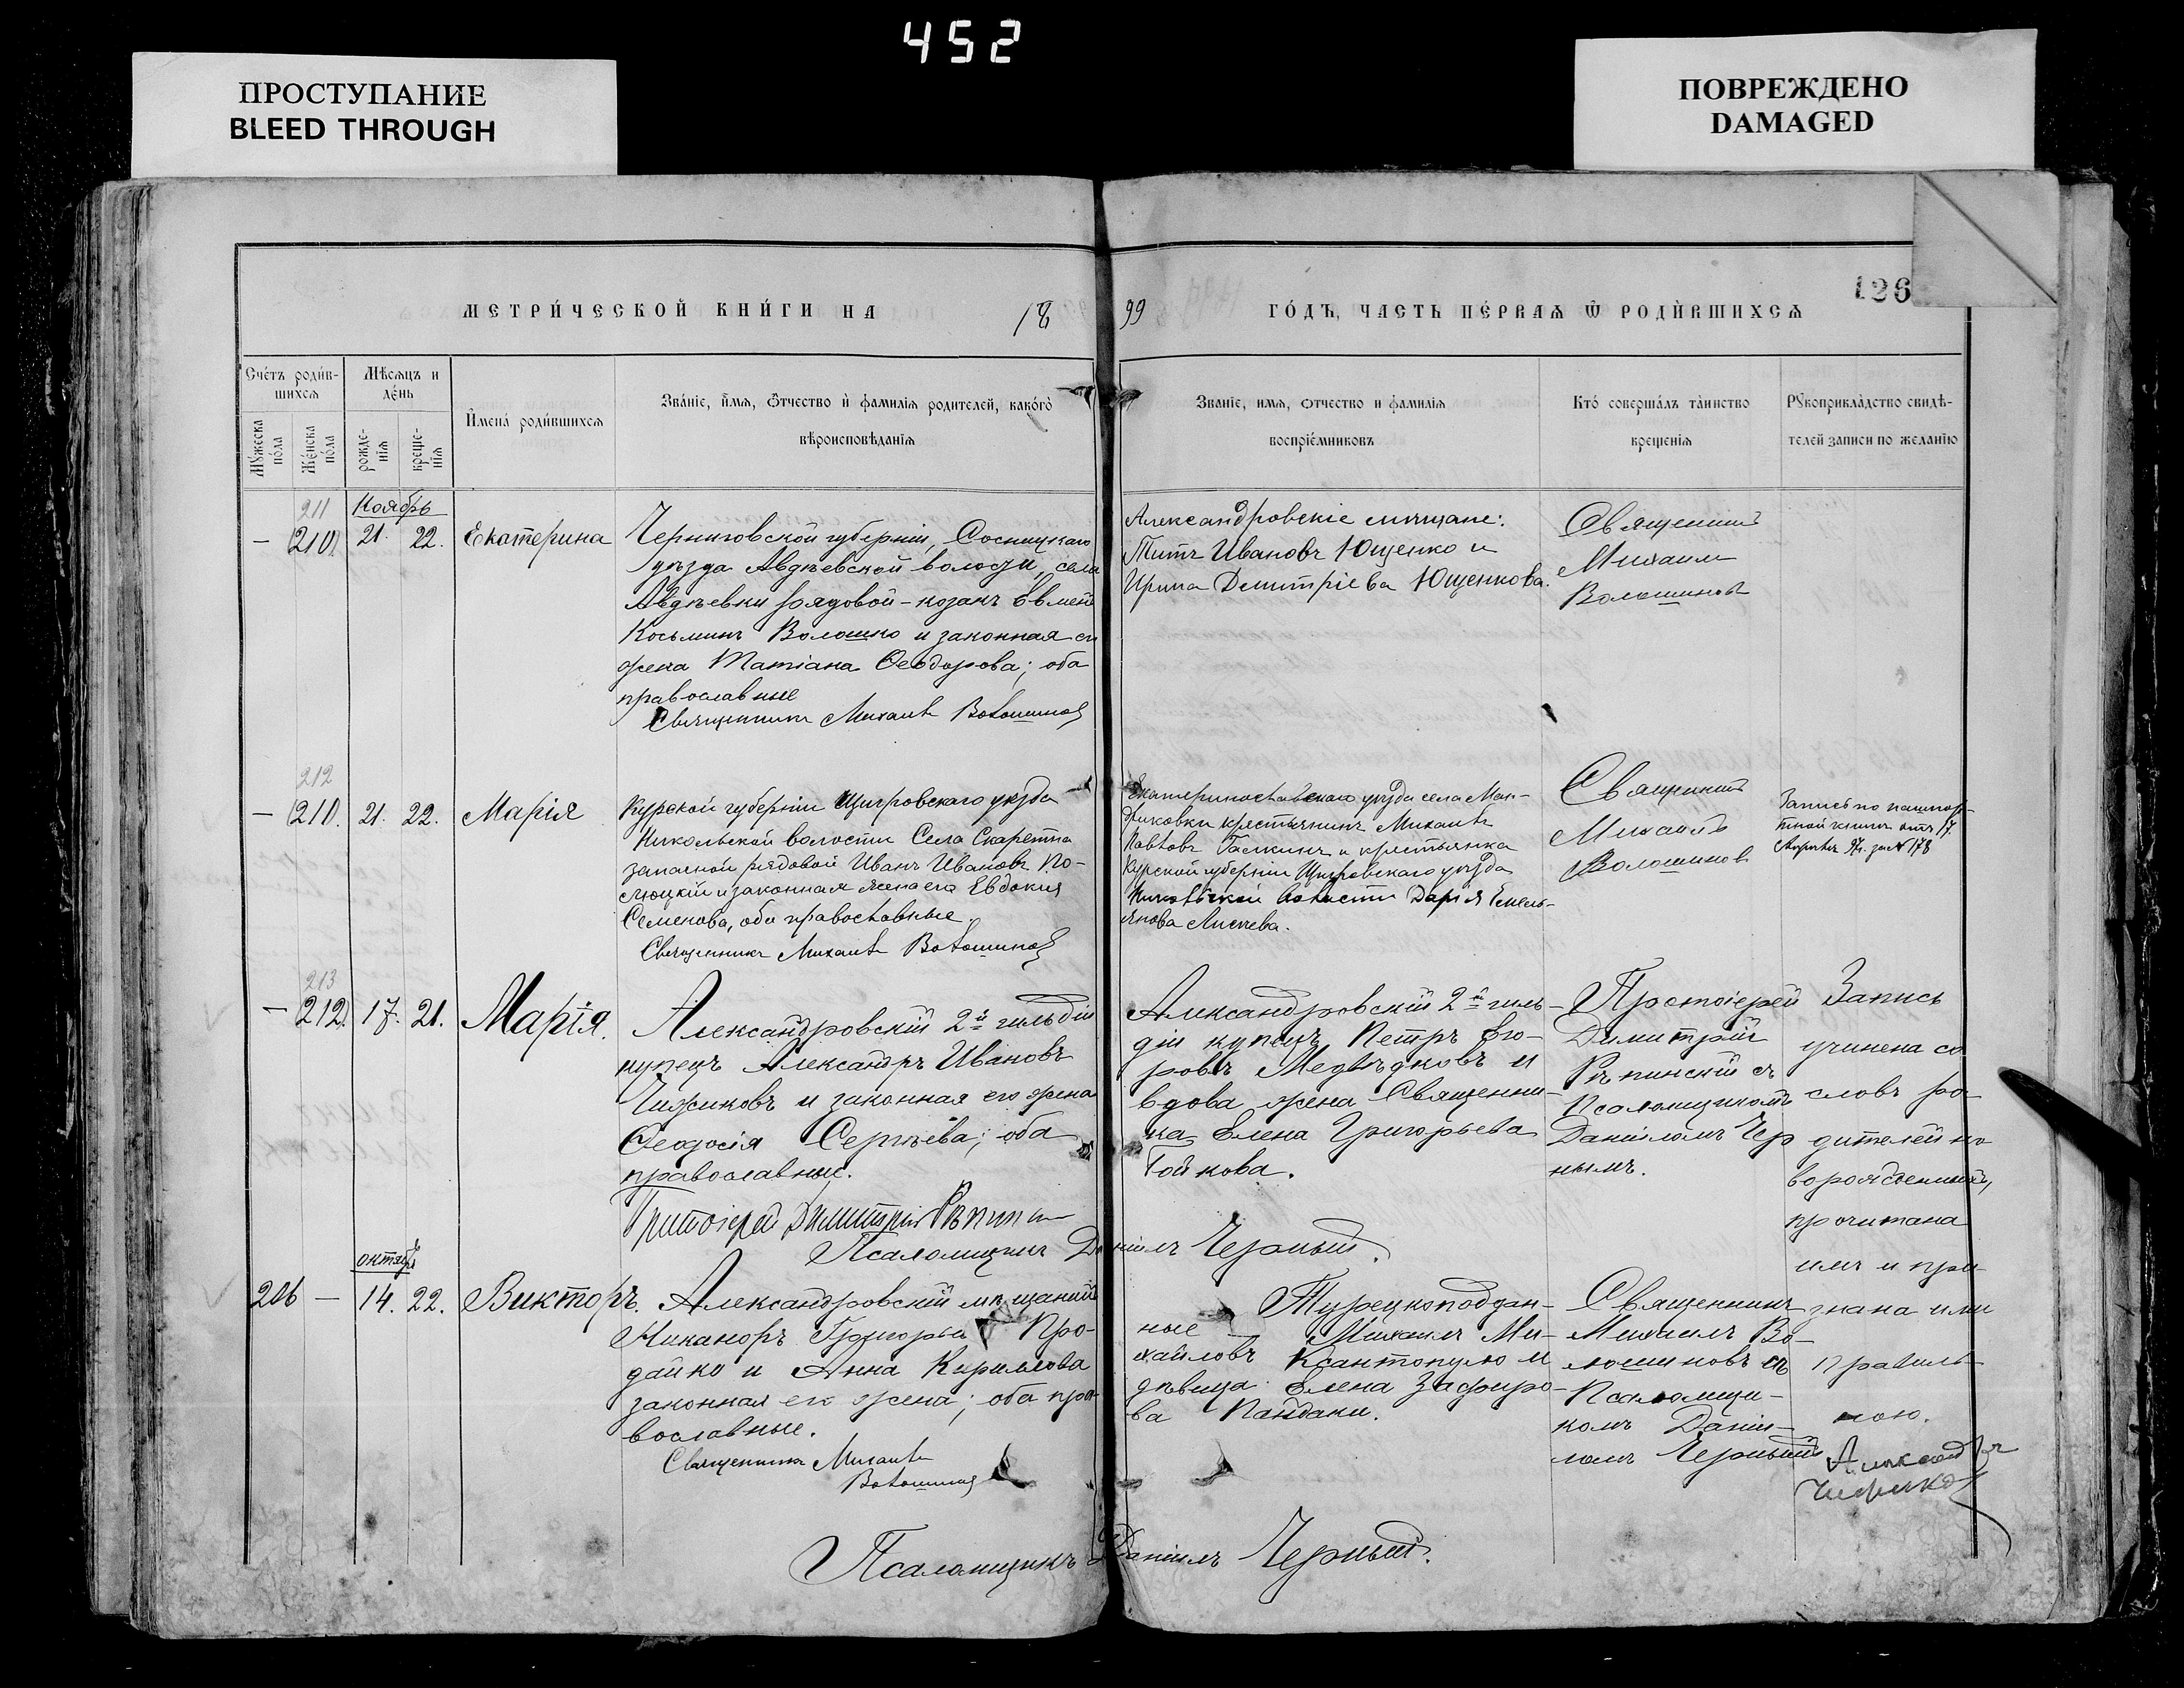 452
ПРОСТУПАНИЕ
BLEED THROUGH
ПОВРЕЖДЕНО
DAMAGED
126
МЕТРИ́ЧЕСКОЙ КНИ́ГИ НА 18
99 ГО́ДЪ, ЧАСТЬ ПЕ́РВАѦ Ѿ РОДИ́ВШИХСѦ
Сче́тъ роди́в-
шихсѧ
Мꙋ́жеска
по́ла
Же́нска
по́ла
Мѣ́сѧцъ и
де́нь
рожде-
нїѧ
креще-
нїѧ
И҆мена̀ роди́вшихсѧ
Зва́нїе, и҆́мѧ, ѻ҆́тчество и҆ фамилїѧ родителей, како́гѡ
вѣроисповѣданїѧ
Званїе, имѧ, ѻтчество и фамилїѧ
воспрїе́мниковъ
Кто́ соверша́лъ та́инство
крещенїѧ
Рꙋкоприкла́дство свидѣ́-
телей записи по желанїю
211
Ноябрь
— 210. 21. 22. Екатерина
Черниговской губерніи, Сосницкаго
уѣзда Авдѣевской волости, села
Авдѣевки рядовой-козакъ Евменъ
Косьминъ Волошко и законная его
жена Татіана Ѳеодорова; оба
православные
Священникъ Михаилъ Волошиновъ
Александровскіе мѣщане:
Титъ Ивановъ Ющенко и
Ирина Димитріева Ющенкова.
Священникъ
Михаилъ
Волошиновъ
212
— 210. 21. 22. Марія
Курской губерніи Щигровскаго уѣзда
Никольской волости Села
запасной рядовой Иванъ Ивановъ По-
люцкій и законная жена его Евдокія
Семенова, оба православные.
Священникъ Михаилъ Волошиновъ
Екатеринославскаго уѣзда села
крестьянинъ Михаилъ
Павловъ Галкинъ и крестьянка
Курской губерніи Щигровскаго уѣзда
Никольской волости Дарія Емель-
янова
Священникъ
Михаилъ
Волошиновъ
Запись по паспор-
тной книжкѣ отъ 17.
97г. за № 178
213
— 212. 17. 21. Марія.
Александровскій 2й гильдіи
купецъ Александръ Ивановъ
Чижиковъ и законная его жена
Ѳеодосія Сергѣева; оба
православные.
Протоіерей Димитрій Рѣпинскій
Псаломщикъ Даніилъ Черный.
Александровскій 2й гиль-
діи купецъ Петръ Его-
ровъ Медвѣдковъ и
вдова жена Священни-
ка Елена Григорьева
Гойкова.
Протоіерей
Димитрій
Рѣпинскій съ
Псаломщикомъ
Даніиломъ Чер
нымъ.
Запись
учинена со
словъ ро
дителей но
ворожденной,
прочитана
имъ и при-
знана ими
правиль-
ною.
Александръ
Чижиковъ
октябрь
206 — 14. 22. Викторъ.
Александровскій мѣщанинъ
Никаноръ Григорьевъ Про-
дайко и Анна Кириллова
законная его жена; оба пра-
вославные.
Священникъ Михаилъ
Волошиновъ
Турецкоподдан-
ные Михаилъ Ми-
хайловъ Ксантопуло и
дѣвица Елена Зафиро-
ва Пандаки.
Священникъ
Михаилъ Во-
лошиновъ съ
Псаломщи-
комъ Даніи-
ломъ Чернымъ
Псаломщикъ Даніилъ Черный.